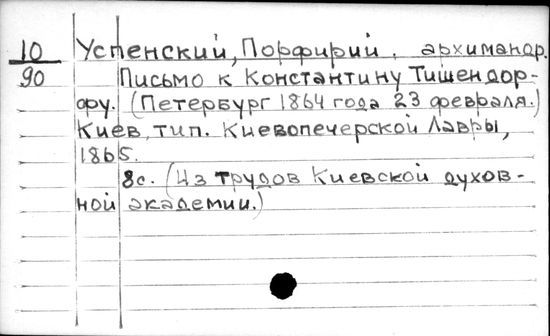 10 Успенский, Порфирий, архимандр.
90 Письмо к Константину Тишендор-
фу. (Петербург 1864 года 23 февраля.)
Киев, тип. Киевопечерской Лавры,
1865.
8с. (Из трудов Киевской духов-
ной академии.)